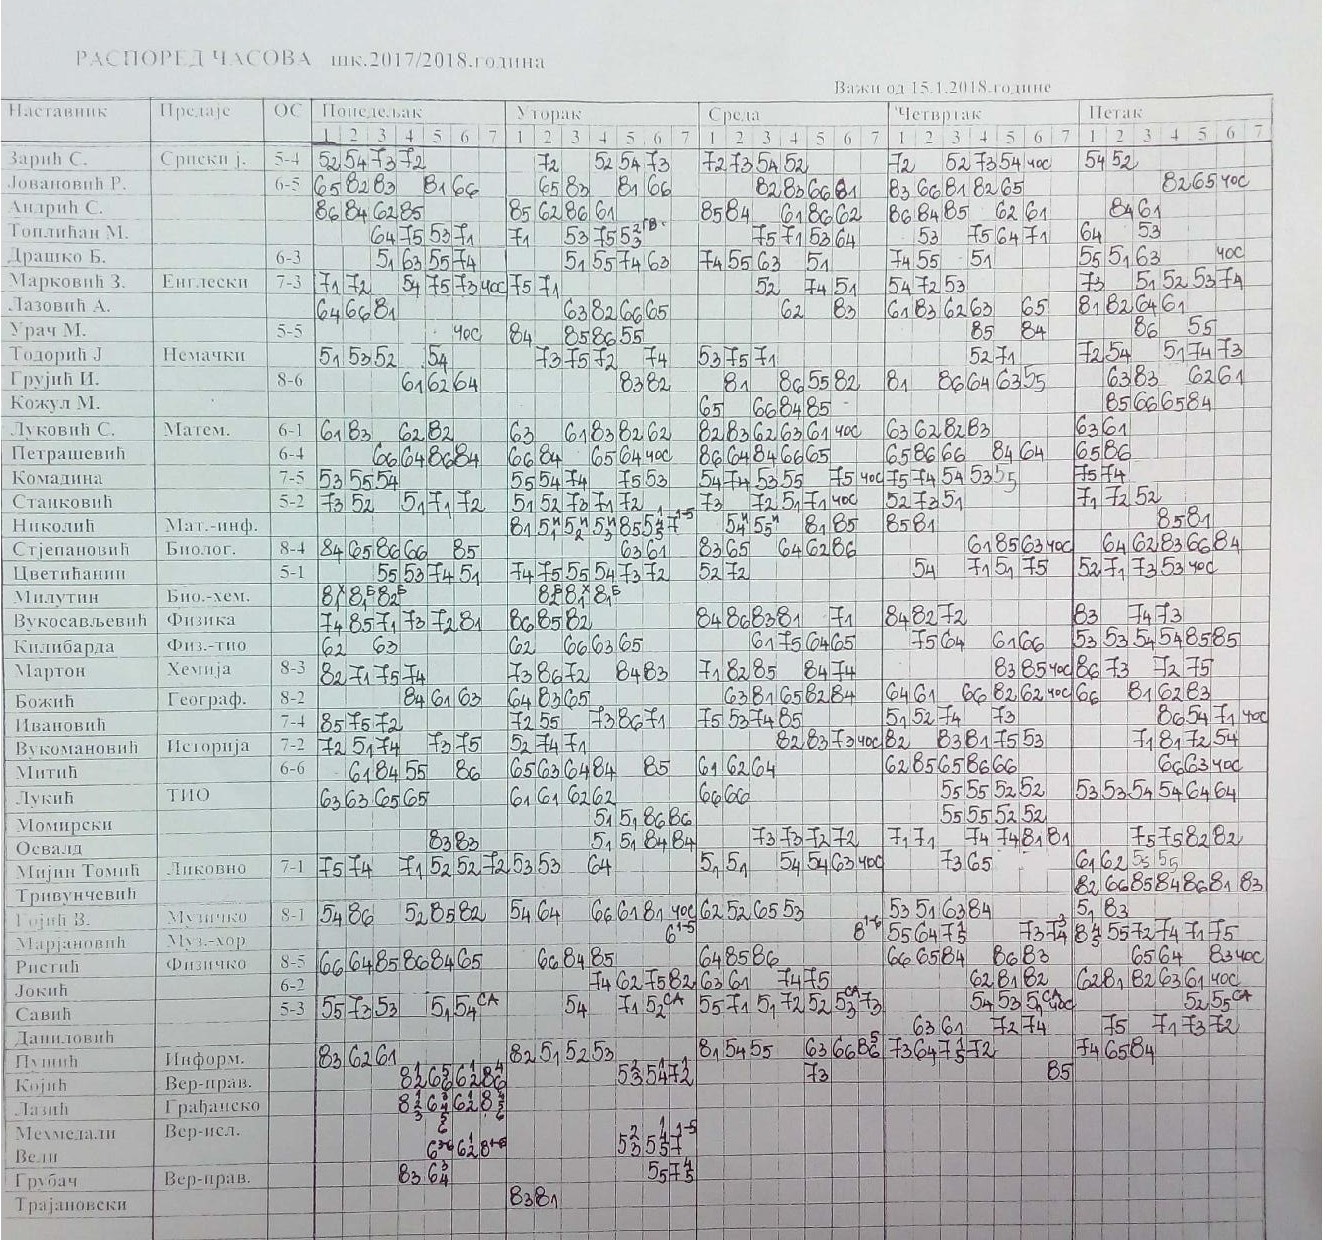 РАСПОРЕД ЧАСОВА шк.2017/2018.година
Важи од 15.1.2018.године
Наставник Предаје ОС Понедељак Уторак Среда Четвртак Петак
1 2 3 4 5 6 7 1 2 3 4 5 6 7 1 2 3 4 5 6 7 1 2 3 4 5 6 7 1 2 3 4 5 6 7
Зарић С. Српски ј. 5-4 52 54 73 72 72 52 54 73 72 73 54 52 72 52 73 54 чос 54 52
Јовановић Р. 6-5 65 82 83 81 66 65 83 81 66 82 83 66 81 83 66 81 82 65 82 65 чос
Андрић С. 86 84 62 85 85 62 86 61 85 84 61 86 62 86 84 85 62 61 84 61
Топлићан М. 64 75 53 71 71 53 75 53 75 71 53 64 53 75 64 71 64 53
Драшко Б. 6-3 51 63 55 74 51 55 74 63 74 55 63 51 74 55 51 55 51 63 чос
Марковић З. Енглески 7-3 71 72 54 75 73 чос 75 71 52 74 51 54 72 53 73 51 52 53 74
Лазовић А. 64 66 81 63 82 66 65 62 83 61 83 62 63 65 81 82 64 61
Урач М. 5-5 чос 84 85 86 55 85 84 86 55
Тодорић Ј Немачки 51 53 52 54 73 75 72 74 53 75 71 52 71 72 54 51 74 73
Грујић И. 8-6 61 62 64 83 82 81 86 55 82 81 86 64 63 55 63 83 62 61
Кожул М. 65 66 84 85 85 66 65 84
Луковић С. Матем. 6-1 61 83 62 82 63 61 83 82 62 82 83 62 63 61 чос 63 62 82 83 63 61
Петрашевић 6-4 66 64 86 84 66 84 65 64 чос 86 64 84 66 65 65 86 66 84 64 65 86
Комадина 7-5 53 55 54 55 54 74 75 53 54 74 53 55 75 чос 75 74 54 53 55 75 74
Станковић 5-2 73 52 51 71 72 51 52 73 71 72 73 72 51 71 чос 52 73 51 71 72 52
Николић Мат.-инф. 81 85 81 85 85 81 85 81
Стјепановић Биолог. 8-4 84 65 86 66 85 63 61 83 65 64 62 86 61 85 63 чос 64 62 83 66 84
Цветићанин 5-1 55 53 74 51 74 75 55 54 73 72 52 72 54 71 51 75 52 71 73 53 чос
Милутин Био.-хем.
Вукосављевић Физика 74 85 71 73 72 81 86 85 82 84 86 83 81 71 84 82 72 83 74 73
Килибарда Физ.-тио 62 63 62 66 63 65 61 75 64 65 75 64 61 66 53 53 54 54 85 85
Мартон Хемија 8-3 82 71 75 74 73 86 72 84 83 71 82 85 84 74 83 85 чос 86 73 72 75
Божић Географ. 8-2 84 61 63 64 83 65 63 81 65 82 84 64 61 66 82 62 чос 66 81 62 83
Ивановић 7-4 85 75 72 72 55 73 86 71 75 53 74 85 51 52 74 73 86 54 71 чос
Вукомановић Историја 7-2 72 51 74 73 75 52 74 71 82 83 73 чос 82 83 81 75 53 71 81 72 54
Митић 6-6 61 84 55 86 65 63 64 84 85 61 62 64 62 85 65 86 66 66 63 чос
Лукић ТИО 63 63 65 65 61 61 62 62 66 66 55 55 52 52 53 53 54 54 64 64
Момирски 51 51 86 86 55 55 52 52
Освалд 83 83 51 51 84 84 73 73 72 72 71 71 74 74 81 81 75 75 82 82
Мијин Томић Ликовно 7-1 75 74 71 52 52 72 53 53 64 51 51 54 54 63 чос 73 65 61 62 55 55
Тривунчевић 82 66 85 84 86 81 83
Гојић В. Музичко 8-1 54 86 52 85 82 54 64 66 61 81 чос 62 52 65 53 53 51 63 84 51 83
Марјановић Муз.-хор 55 64 73 55 72 74 71 75
Ристић Физичко 8-5 66 64 85 86 84 65 66 84 85 64 85 86 66 65 84 86 83 65 64 83 чос
Јокић 6-2 74 62 75 82 63 61 74 75 62 81 82 62 81 82 63 61 чос
Савић 5-3 55 73 53 51 54 СА 54 71 52 СА 55 71 51 72 52 53 СА 73 54 53 51 СА чос 52 55 СА
Даниловић 63 61 72 74 75 71 73 72
Пушић Информ. 83 62 61 82 51 52 53 81 54 55 63 66 73 64 72 74 65 84
Којић Вер-прав. 73 85
Лазић Грађанско
Мехмедали Вер-исл.
Вели
Грубач Вер-прав. 83
Трајановски 83 81